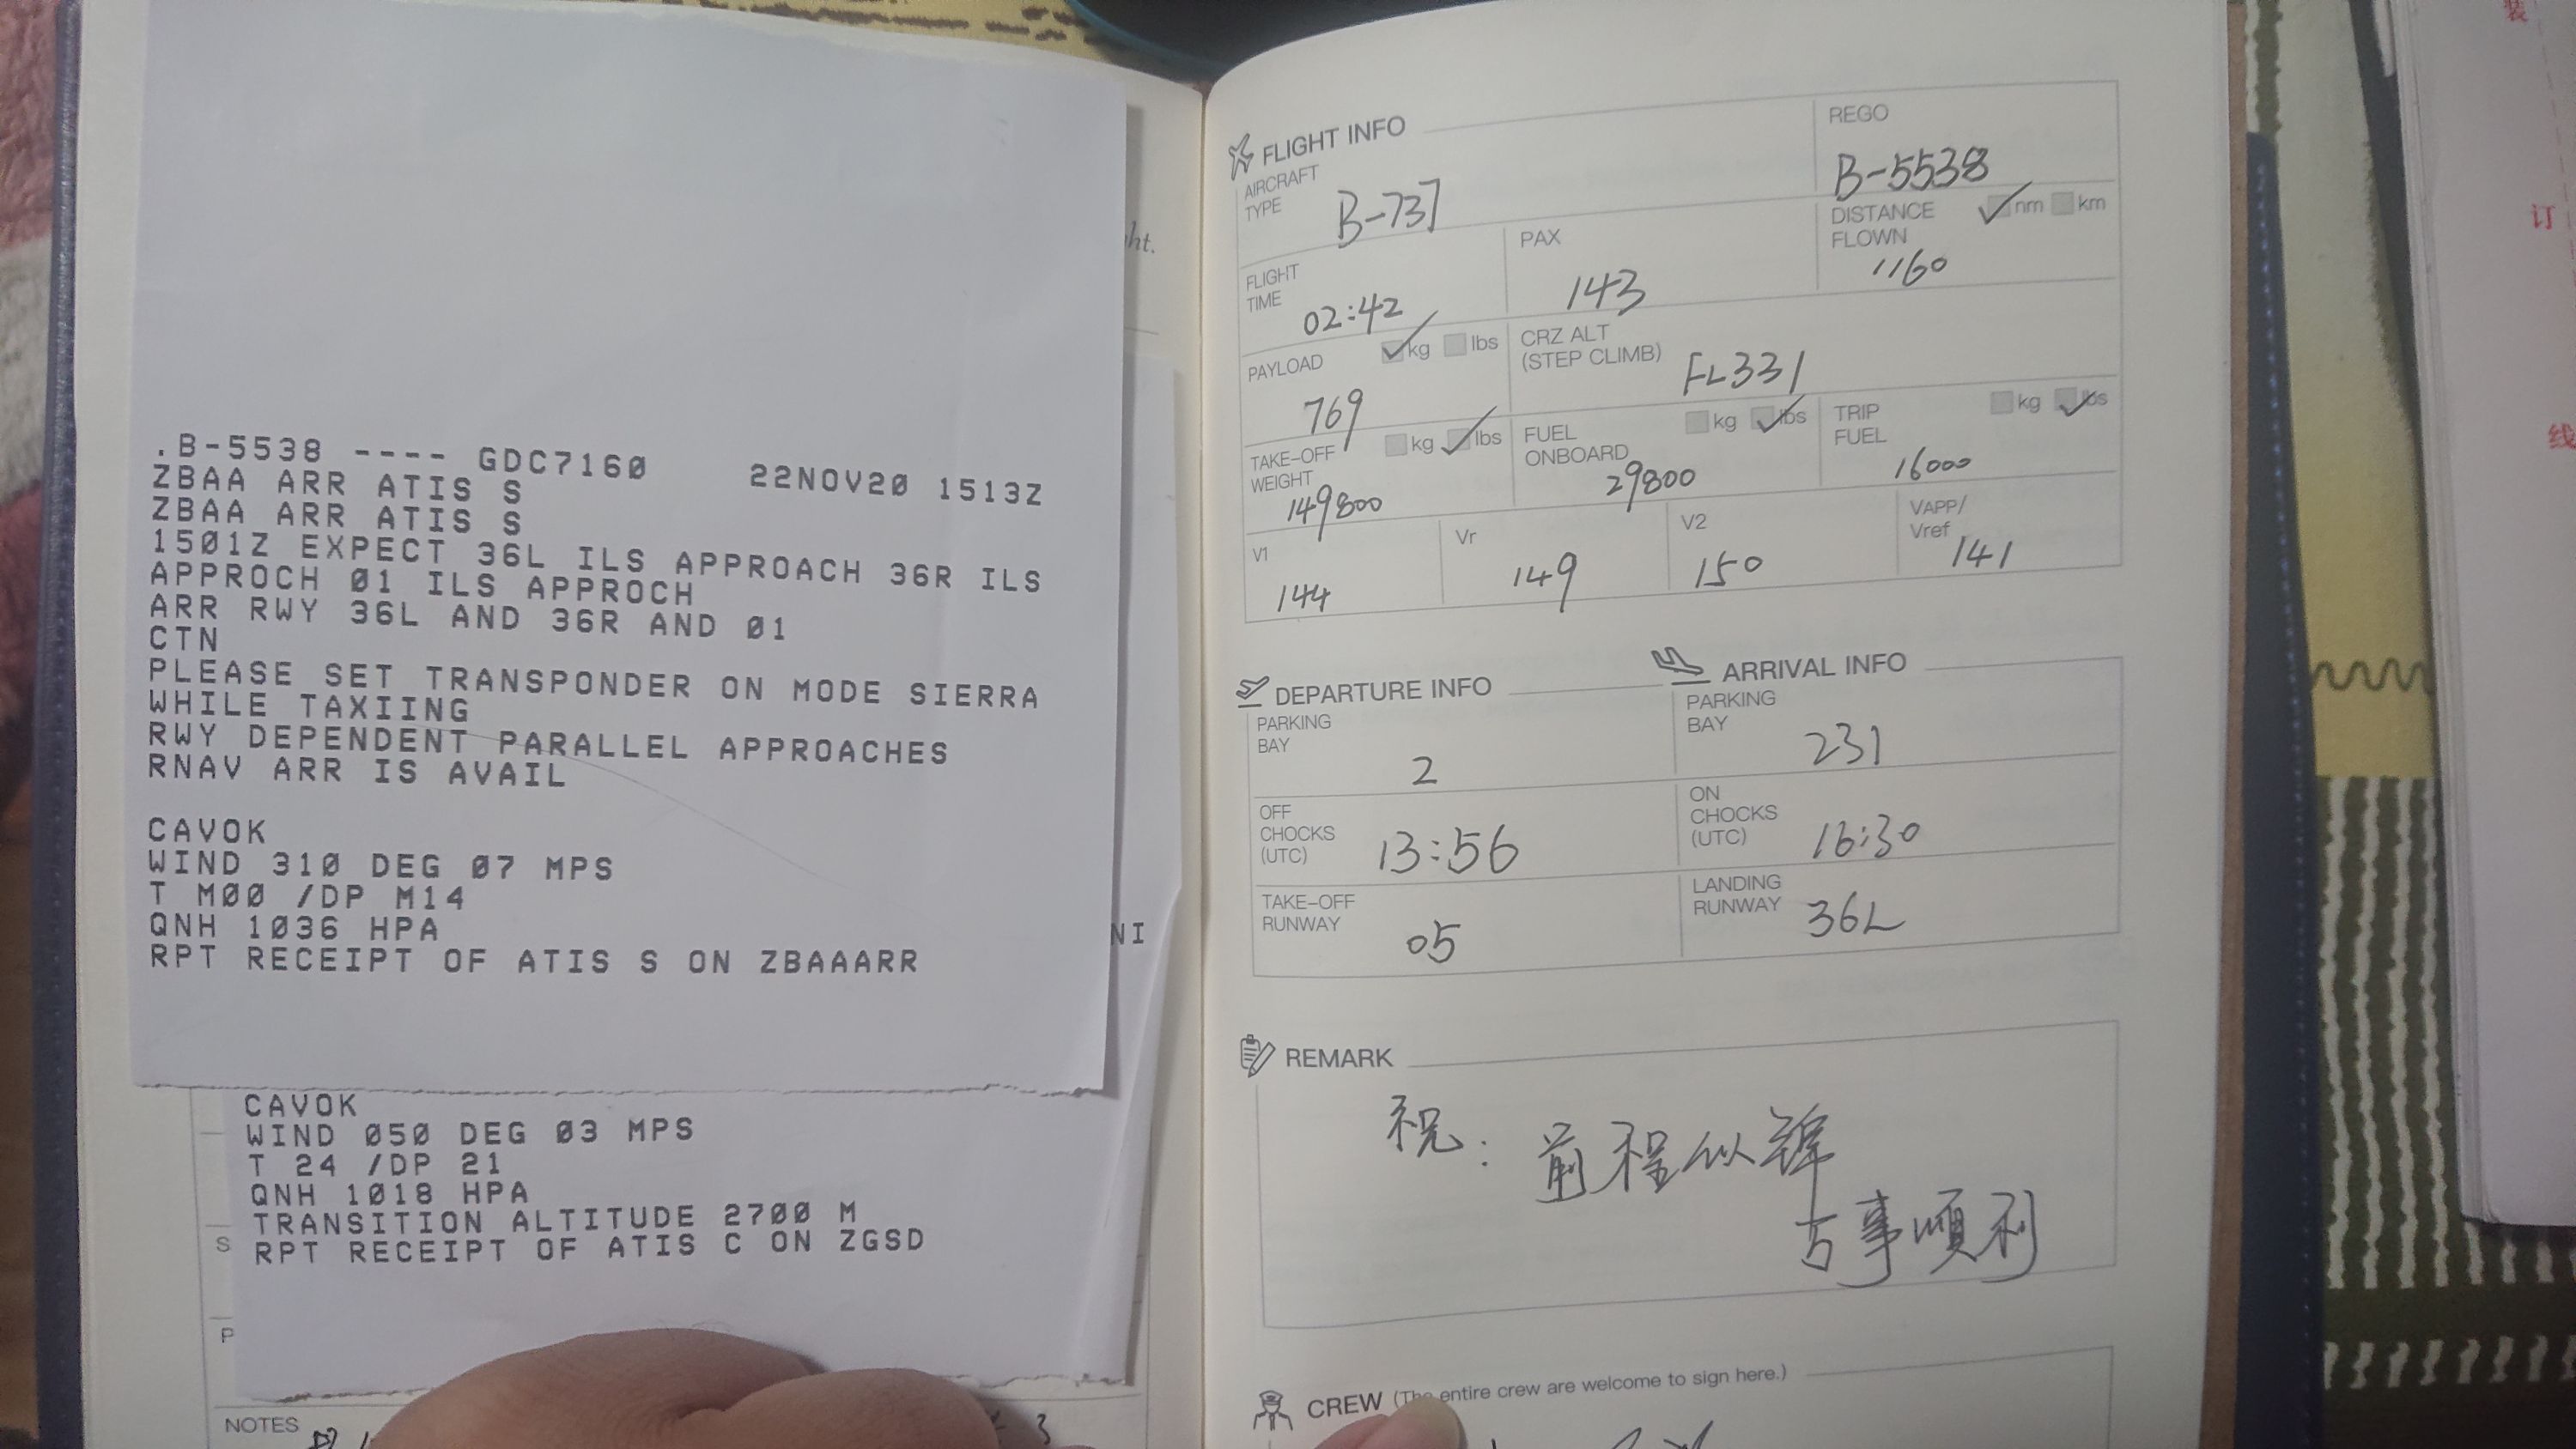 .B-5538 ---- GDC7160 22NOV20 1513Z
ZBAA ARR ATIS S
ZBAA ARR ATIS S
1501Z EXPECT 36L ILS APPROACH 36R ILS
APPROCH 01 ILS APPROCH
ARR RWY 36L AND 36R AND 01
CTN
PLEASE SET TRANSPONDER ON MODE SIERRA
WHILE TAXIING
RWY DEPENDENT PARALLEL APPROACHES
RNAV ARR IS AVAIL
CAVOK
WIND 310 DEG 07 MPS
T M00 /DP M14
QNH 1036 HPA
RPT RECEIPT OF ATIS S ON ZBAAARR
CAVOK
WIND 050 DEG 03 MPS
T 24 /DP 21
QNH 1018 HPA
TRANSITION ALTITUDE 2700 M
RPT RECEIPT OF ATIS C ON ZGSD
ht.
NI
S
P
NOTES
3
FLIGHT INFO
AIRCRAFT
TYPE
B-737
REGO
B-5538
FLIGHT
TIME
02:42
PAX
143
DISTANCE
FLOWN
nm km
1160
PAYLOAD
kg lbs
769
CRZ ALT
(STEP CLIMB)
FL331
TAKE-OFF
WEIGHT
kg lbs
149800
FUEL
ONBOARD
kg lbs
29800
TRIP
FUEL
kg lbs
16000
V1
144
Vr
149
V2
150
VAPP/
Vref
141
DEPARTURE INFO
PARKING
BAY
2
OFF
CHOCKS
(UTC)
13:56
TAKE-OFF
RUNWAY
05
ARRIVAL INFO
PARKING
BAY
231
ON
CHOCKS
(UTC)
16:30
LANDING
RUNWAY
36L
REMARK
祝：前程似锦
万事顺利
CREW (The entire crew are welcome to sign here.)
装
订
线